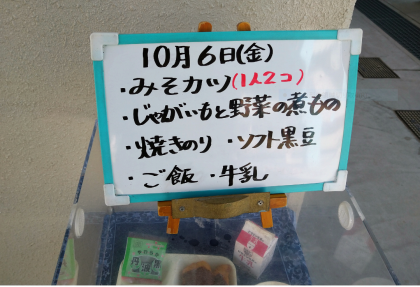 10月6日(金)
・みそカツ(1人2コ)
・じゃがいもと野菜の煮もの
・焼きのり ・ソフト黒豆
・ご飯 ・牛乳